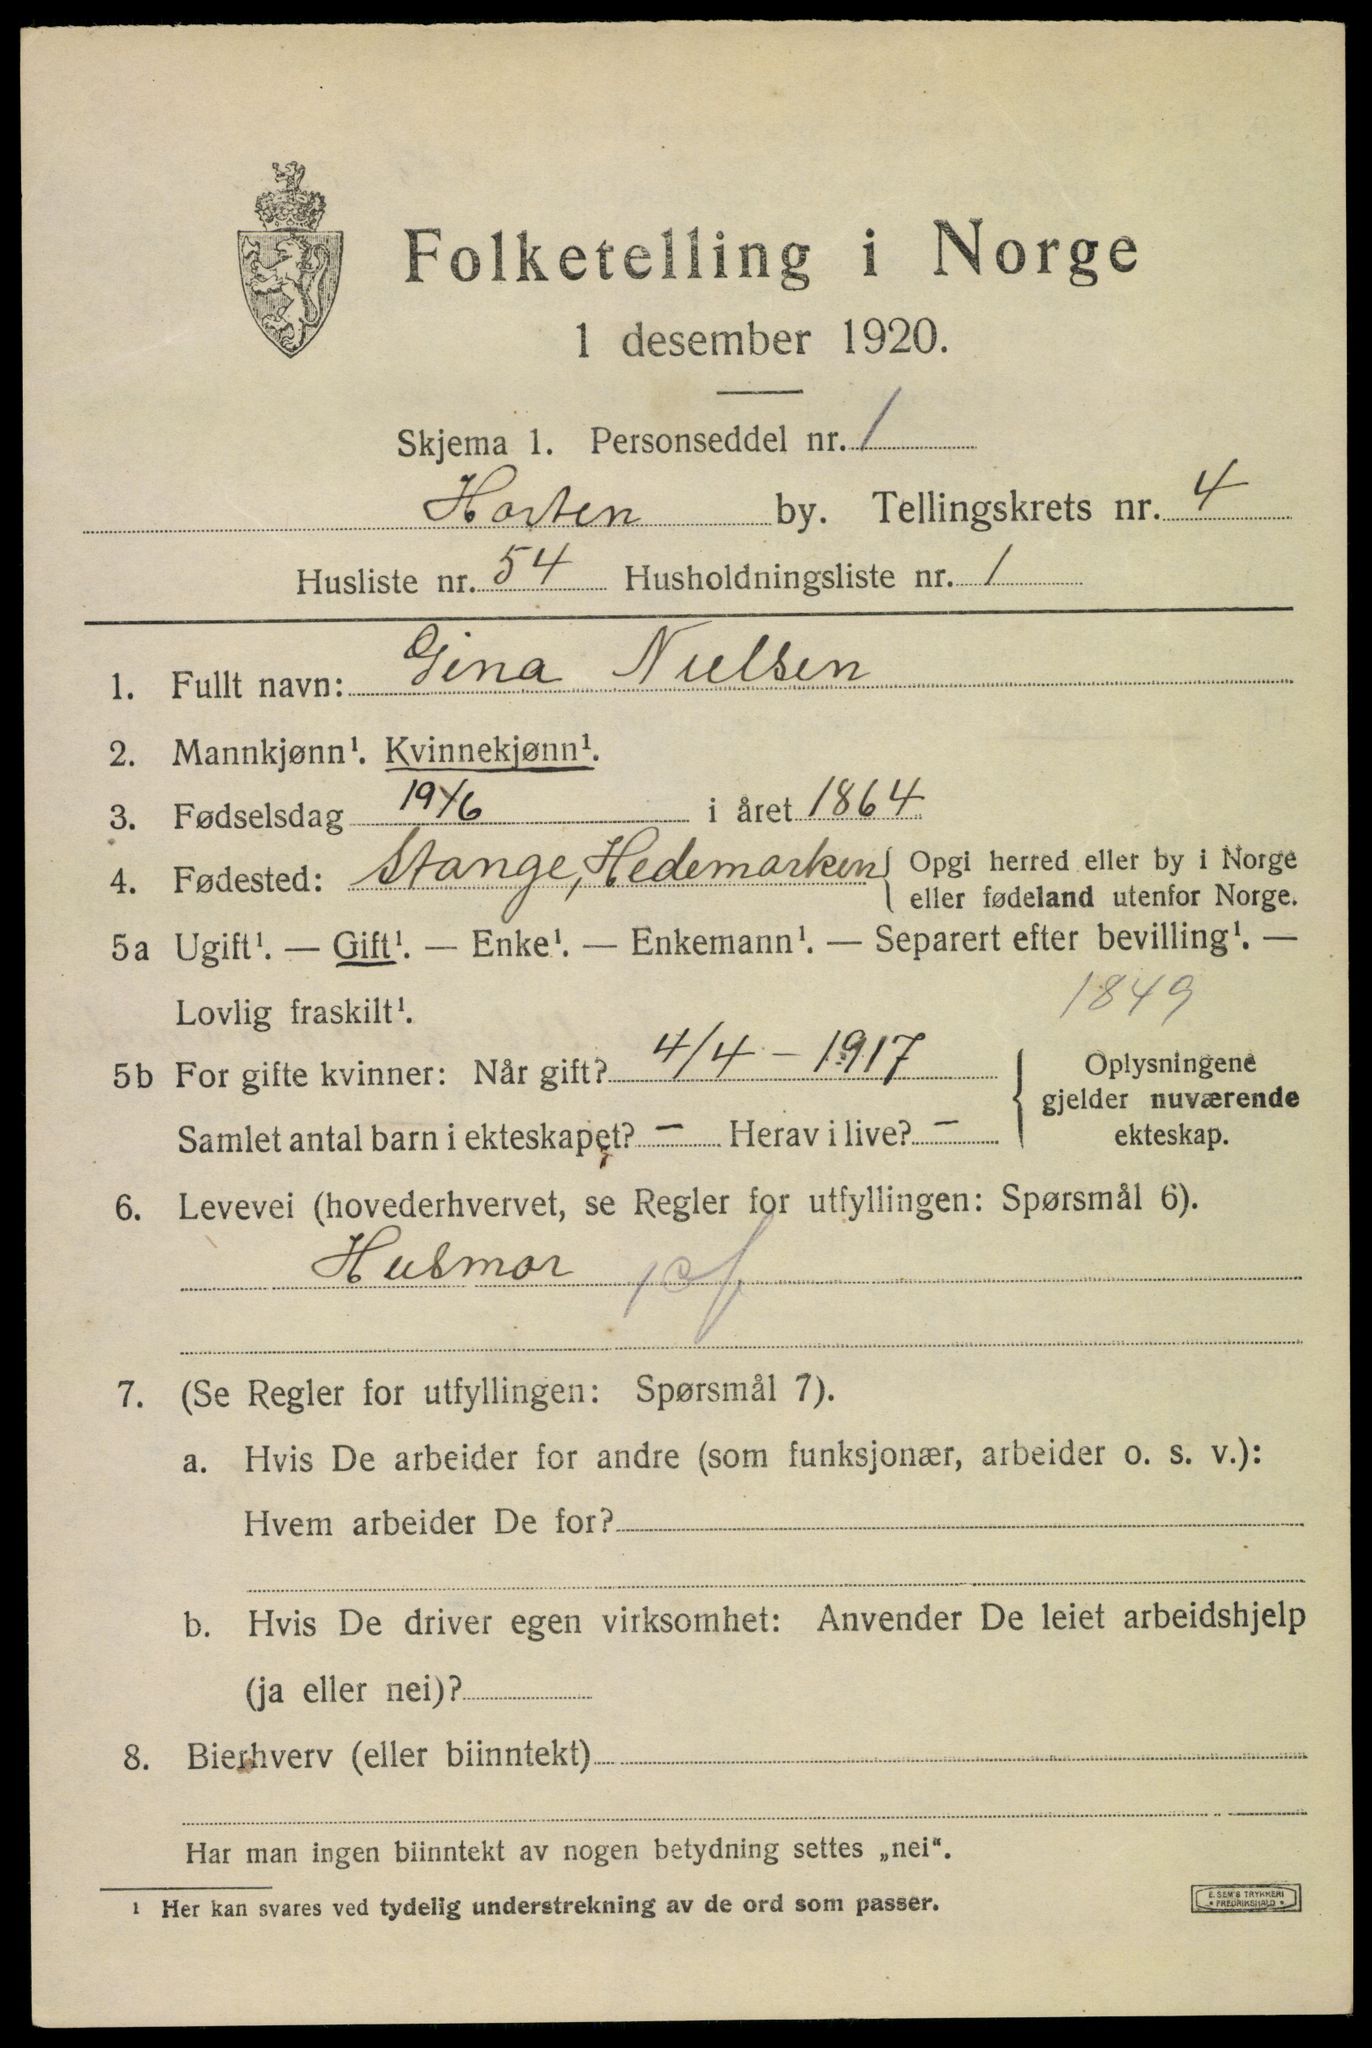 Folketelling i Norge
1 desember 1920.
Skjema 1. Personseddel nr. 1
Horten by. Tellingskrets nr. 4
Husliste nr. 54 Husholdningsliste nr. 1
1. Fullt navn: Gina Nielsen
2. Mannkjønn¹. Kvinnekjønn¹.
3. Fødselsdag 19/6 i året 1864
4. Fødested: Stange, Hedemarken { Opgi herred eller by i Norge
eller fødeland utenfor Norge.
5a Ugift¹. — Gift¹. — Enke¹. — Enkemann¹. — Separert efter bevilling¹. —
Lovlig fraskilt¹.
1849
5b For gifte kvinner: Når gift? 4/4 - 1917
Samlet antal barn i ekteskapet? - Herav i live? -
{ Oplysningene
gjelder nuværende
ekteskap.
6. Levevei (hovederhvervet, se Regler for utfyllingen: Spørsmål 6).
Husmor
7. (Se Regler for utfyllingen: Spørsmål 7).
a. Hvis De arbeider for andre (som funksjonær, arbeider o. s. v.):
Hvem arbeider De for?
b. Hvis De driver egen virksomhet: Anvender De leiet arbeidshjelp
(ja eller nei)?
8. Bierhverv (eller biinntekt)
Har man ingen biinntekt av nogen betydning settes „nei“.
¹ Her kan svares ved tydelig understrekning av de ord som passer.
E. SEM'S TRYKKERI
• FREDRIKSHALD •